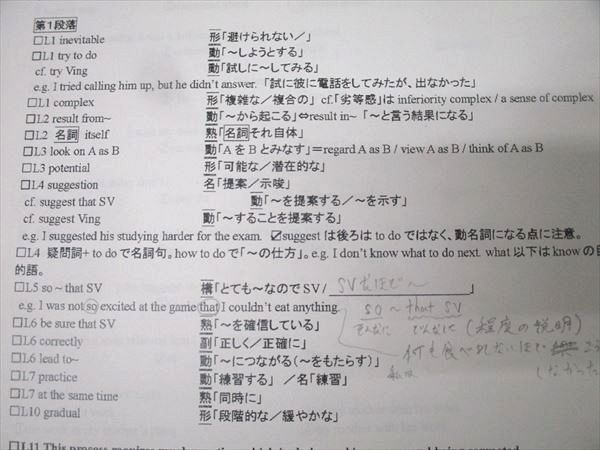 第1段落
□L1 inevitable 形「避けられない／」
□L1 try to do 動「～しようとする」
cf. try Ving 動「試しに～してみる」
e.g. I tried calling him up, but he didn't answer. 「試に彼に電話をしてみたが、出なかった」
□L1 complex 形「複雑な／複合の」 cf.「劣等感」は inferiority complex / a sense of complex
□L2 result from~ 動「～から起こる」⇔result in~ 「～と言う結果になる」
□L2 名詞 itself 熟「名詞それ自体」
□L3 look on A as B 動「A を B とみなす」＝regard A as B / view A as B / think of A as B
□L3 potential 形「可能な／潜在的な」
□L4 suggestion 名「提案／示唆」
cf. suggest that SV 動「～を提案する／～を示す」
cf. suggest Ving 動「～することを提案する」
e.g. I suggested his studying harder for the exam. ☑suggest は後ろは to do ではなく、動名詞になる点に注意。
□L4 疑問詞+ to do で名詞句。how to do で「～の仕方」。e.g. I don't know what to do next. what 以下は know の目
的語。
□L5 so ~ that SV 構「とても~なので SV / SVなほど～」
e.g. I was not so excited at the game that I couldn't eat anything. so ~ that SV
□L6 be sure that SV 熟「～を確信している」 (程度の説明)
□L6 correctly 副「正しく／正確に」 何も食べれないほど
□L6 lead to~ 動「～につながる(～をもたらす)」
□L7 practice 動「練習する」 ／名「練習」
□L7 at the same time 熟「同時に」
□L10 gradual 形「段階的な／緩やかな」
□L11 This process requires